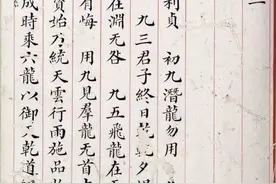 利貞 初九潛龍勿用
九三君子終日乾乾夕惕
在淵无咎 九五飛龍在天
有悔 用九見羣龍无首
資始乃統天雲行雨施品物
成時乘六龍以御天乾道